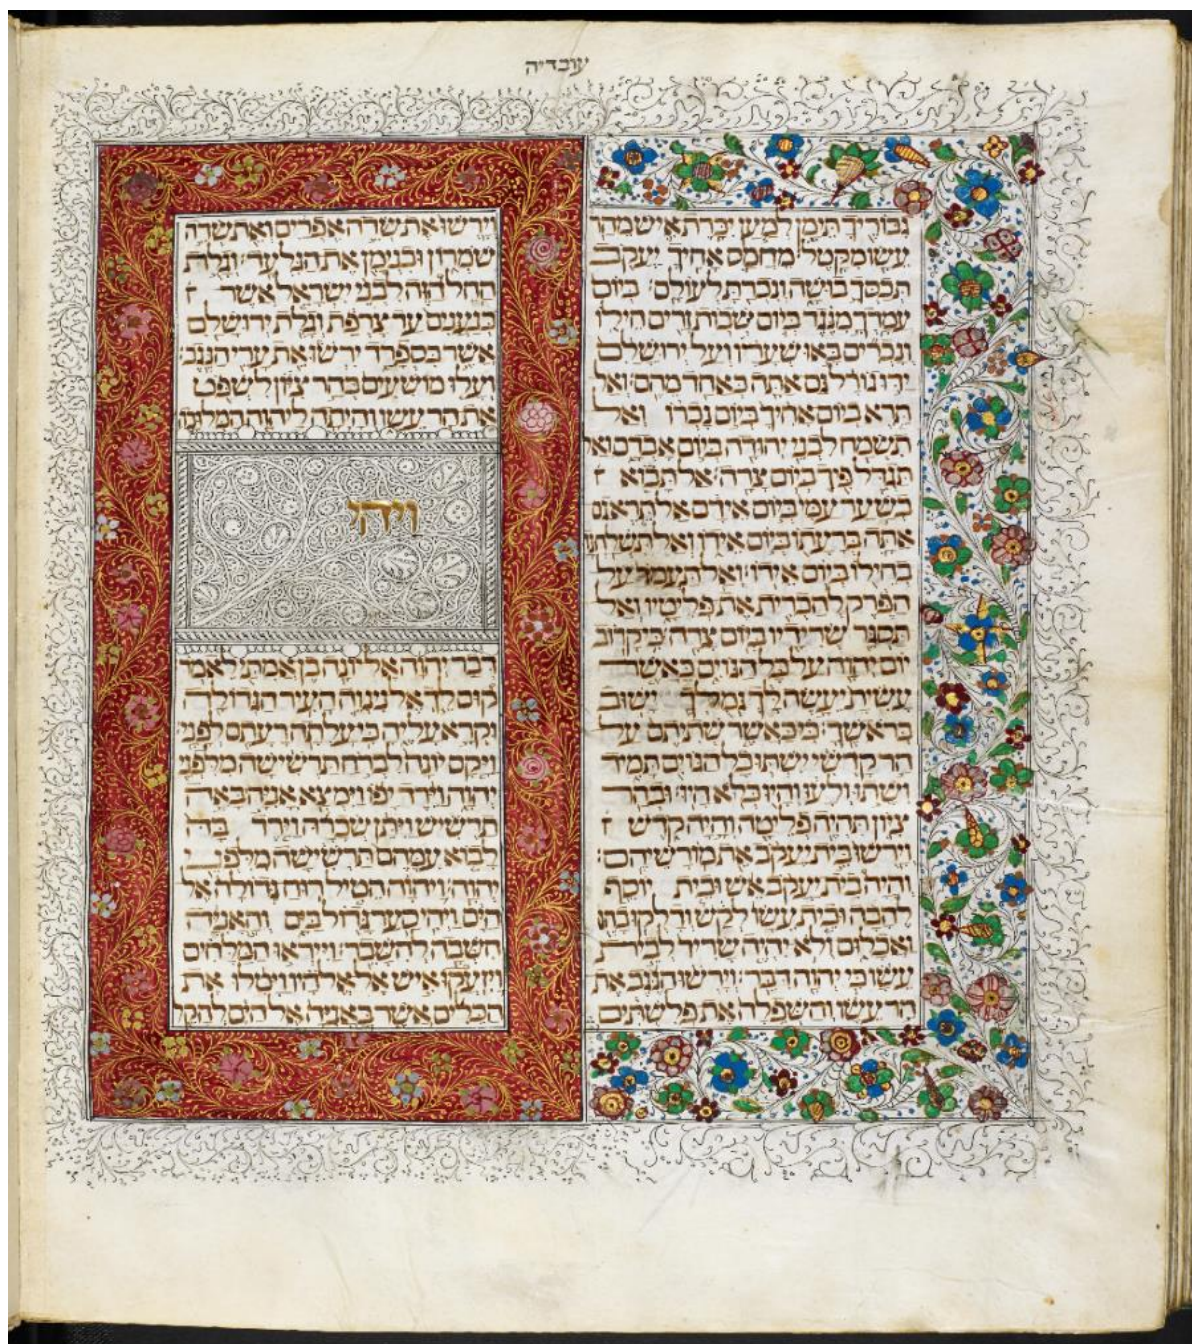 עובדיה
גבוריך תימן למען יכרת איש מהר
עשו מקטל׃ מחמס אחיך יעקב
תכסך בושה ונכרת לעולם׃ ביום
עמדך מנגד ביום שבות זרים חילו
ונכרים באו שערו ועל ירושלם
ידו גורל גם אתה כאחד מהם׃ ואל
תרא ביום אחיך ביום נכרו ואל
תשמח לבני יהודה ביום אבדם ואל
תגדל פיך ביום צרה׃ אל תבוא
בשער עמי ביום אידם אל תרא גם
אתה ברעתו ביום אידו ואל תשלחנה
בחילו ביום אידו׃ ואל תעמד על
הפרק להכרית את פליטיו ואל
תסגר שרידיו ביום צרה׃ כי קרוב
יום יהוה על כל הגוים כאשר
עשית יעשה לך גמלך ישוב
בראשך׃ כי כאשר שתיתם על
הר קדשי ישתו כל הגוים תמיד
ושתו ולעו והיו כלא היו׃ ובהר
ציון תהיה פליטה והיה קדש
וירשו בית יעקב את מורשיהם׃
והיה בית יעקב אש ובית יוסף
להבה ובית עשו לקש ודלקו בהם
ואכלום ולא יהיה שריד לבית
עשו כי יהוה דבר׃ וירשו הנגב את
הר עשו והשפלה את פלשתים
וירשו את שדה אפרים ואת שדה
שמרון ובנימן את הגלעד׃ וגלת
החל הזה לבני ישראל אשר
כנענים עד צרפת וגלת ירושלם
אשר בספרד ירשו את ערי הנגב׃
ועלו מושעים בהר ציון לשפט
את הר עשו והיתה ליהוה המלוכה׃
ויהי
דבר יהוה אל יונה בן אמתי לאמר׃
קום לך אל נינוה העיר הגדולה
וקרא עליה כי עלתה רעתם לפני׃
ויקם יונה לברח תרשישה מלפני
יהוה וירד יפו וימצא אניה באה
תרשיש ויתן שכרה וירד בה
לבוא עמהם תרשישה מלפני
יהוה׃ ויהוה הטיל רוח גדולה אל
הים ויהי סער גדול בים והאניה
חשבה להשבר׃ וייראו המלחים
ויזעקו איש אל אלהיו ויטלו את
הכלים אשר באניה אל הים להקל